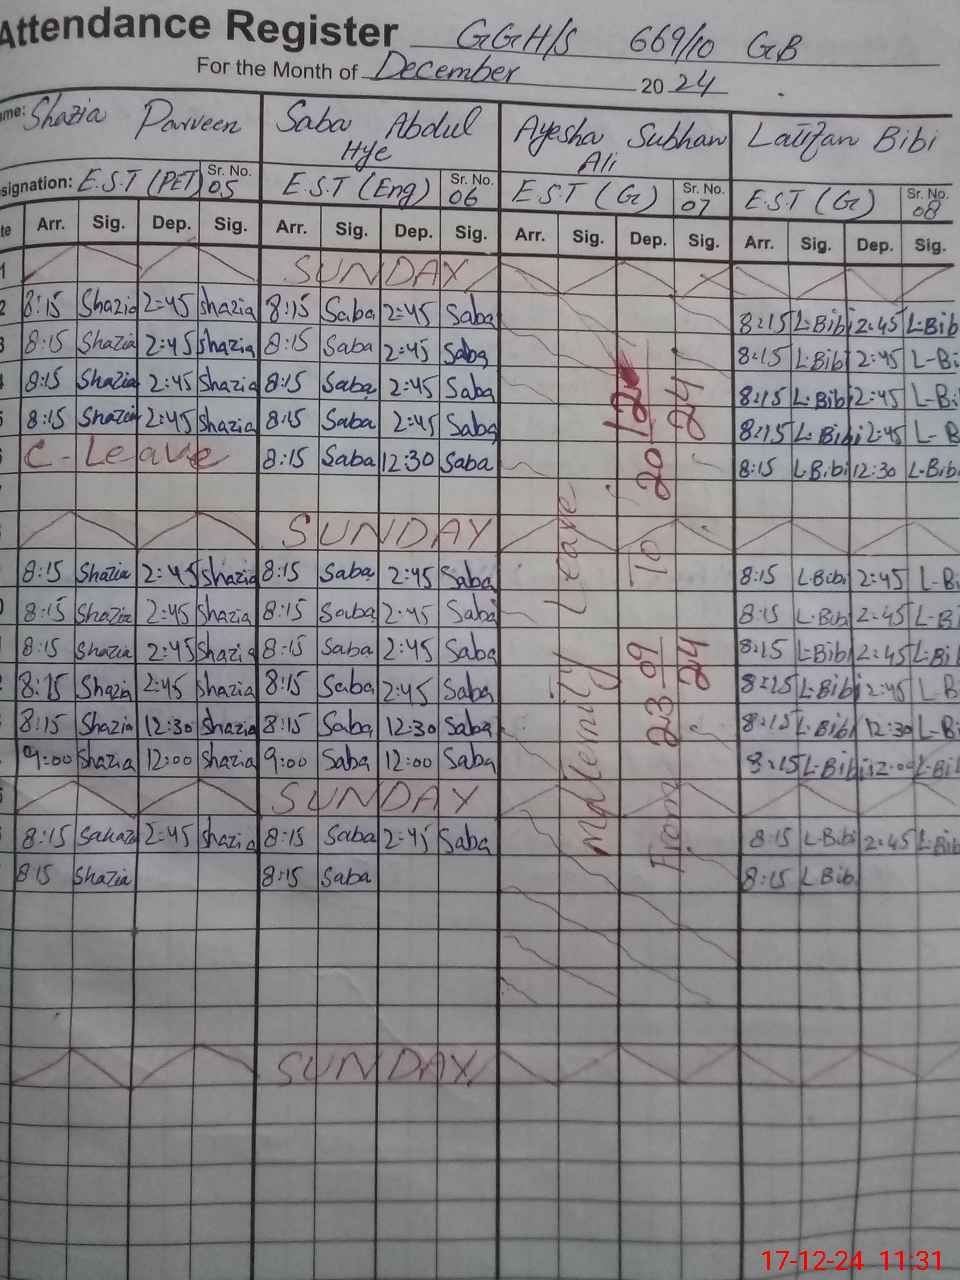 Attendance Register GGH/S 669/10 GB
For the Month of December 2024
ame: Shazia Parveen Saba Abdul Hye Ayesha Subhan Ali Latifan Bibi
signation: E.S.T (PET) Sr. No. 05 E.S.T (Eng) Sr. No. 06 E.S.T (G) Sr. No. 07 E.S.T (G) Sr. No. 08
te Arr. Sig. Dep. Sig. Arr. Sig. Dep. Sig. Arr. Sig. Dep. Sig. Arr. Sig. Dep. Sig.
1 SUNDAY
2 8:15 Shazia 2:45 Shazia 8:15 Saba 2:45 Saba 8:15 L.Bibi 2:45 L.Bib
3 8:15 Shazia 2:45 Shazia 8:15 Saba 2:45 Saba 8:15 L.Bibi 2:45 L-Bi
8:15 Shazia 2:45 Shazia 8:15 Saba 2:45 Saba 8:15 L.Bibi 2:45 L-Bi
8:15 Shazia 2:45 Shazia 8:15 Saba 2:45 Saba 8:15 L.Bibi 2:45 L-B
C-Leave 8:15 Saba 12:30 Saba 8:15 L.Bibi 12:30 L-Bib
SUNDAY
8:15 Shazia 2:45 Shazia 8:15 Saba 2:45 Saba 8:15 L.Bibi 2:45 L-B
8:15 Shazia 2:45 Shazia 8:15 Saba 2:45 Saba 8:15 L.Bibi 2:45 L-Bi
8:15 Shazia 2:45 Shazia 8:15 Saba 2:45 Saba 8:15 L.Bibi 2:45 L-Bil
8:15 Shazia 2:45 Shazia 8:15 Saba 2:45 Saba 8:15 L.Bibi 2:45 L-B
8:15 Shazia 12:30 Shazia 8:15 Saba 12:30 Saba 8:15 L.Bibi 12:30 L-Bi
9:00 Shazia 12:00 Shazia 9:00 Saba 12:00 Saba 8:15 L-Bibi 12:00 L-Bil
SUNDAY
8:15 2:45 Shazia 8:15 Saba 2:45 Saba 8:15 L.Bibi 2:45 L.Bib
8:15 Shazia 8:15 Saba 8:15 L Bib
SUNDAY
Maternity Leave
From 23 09 24 To 20 12 24
17-12-24 11:31